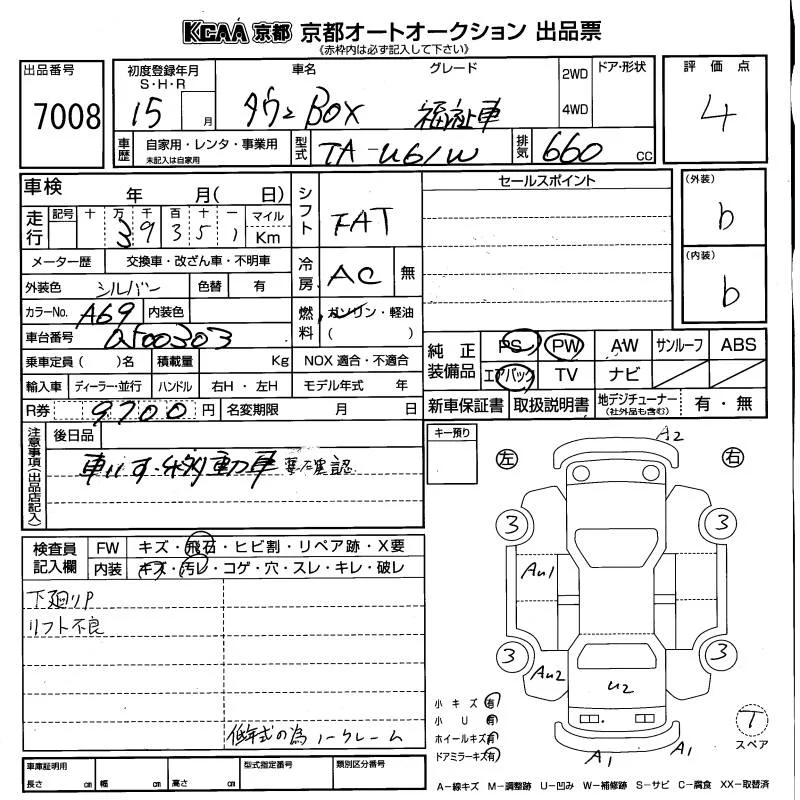 KCAA 京都 京都オートオークション 出品票
《赤枠内は必ず記入して下さい》
出品番号
7008
初度登録年月
S・H・R
15 月
車名
タウンBOX
グレード
福祉車
2WD
4WD
ドア・形状
評価点
4
車歴
自家用・レンタ・事業用
未記入は自家用
型式
TA-U61W
排気
660 cc
車検
年 月( 日)
走行
記号 十 万 千 百 十 一 マイル
3 9 3 5 1 Km
メーター歴 交換車・改ざん車・不明車
外装色 シルバー 色替 有
カラーNo. A69 内装色
車台番号
乗車定員 ( )名 積載量 Kg
輸入車 ディーラー・並行 ハンドル 右H・左H
R券 9700 円 名変期限 月 日
シフト
FAT
冷房
AC 無
燃料
ガソリン・軽油
( )
NOX 適合・不適合
モデル年式 年
セールスポイント
(外装)
b
(内装)
b
純正装備品
PS PW AW サンルーフ ABS
エアバック TV ナビ
新車保証書 取扱説明書 地デジチューナー
(社外品も含む) 有・無
注意事項(出品店記入)
後日品
車いす移動車 要確認
キー預り
左
右
A2
3
3
Au1
3
3
Au2
U2
A1
A1
小キズ 有
小U 有
ホイールキズ 有
ドアミラーキズ 有
T
スペア
検査員記入欄
FW キズ・飛石・ヒビ割・リペア跡・X要
内装 キズ・汚レ・コゲ・穴・スレ・キレ・破レ
下廻りP
リフト不良
低年式の為ノークレーム
車庫証明用
長さ cm 幅 cm 高さ cm
型式指定番号
類別区分番号
A−線キズ M−調整跡 U−凹み W−補修跡 S−サビ C−腐食 XX−取替済